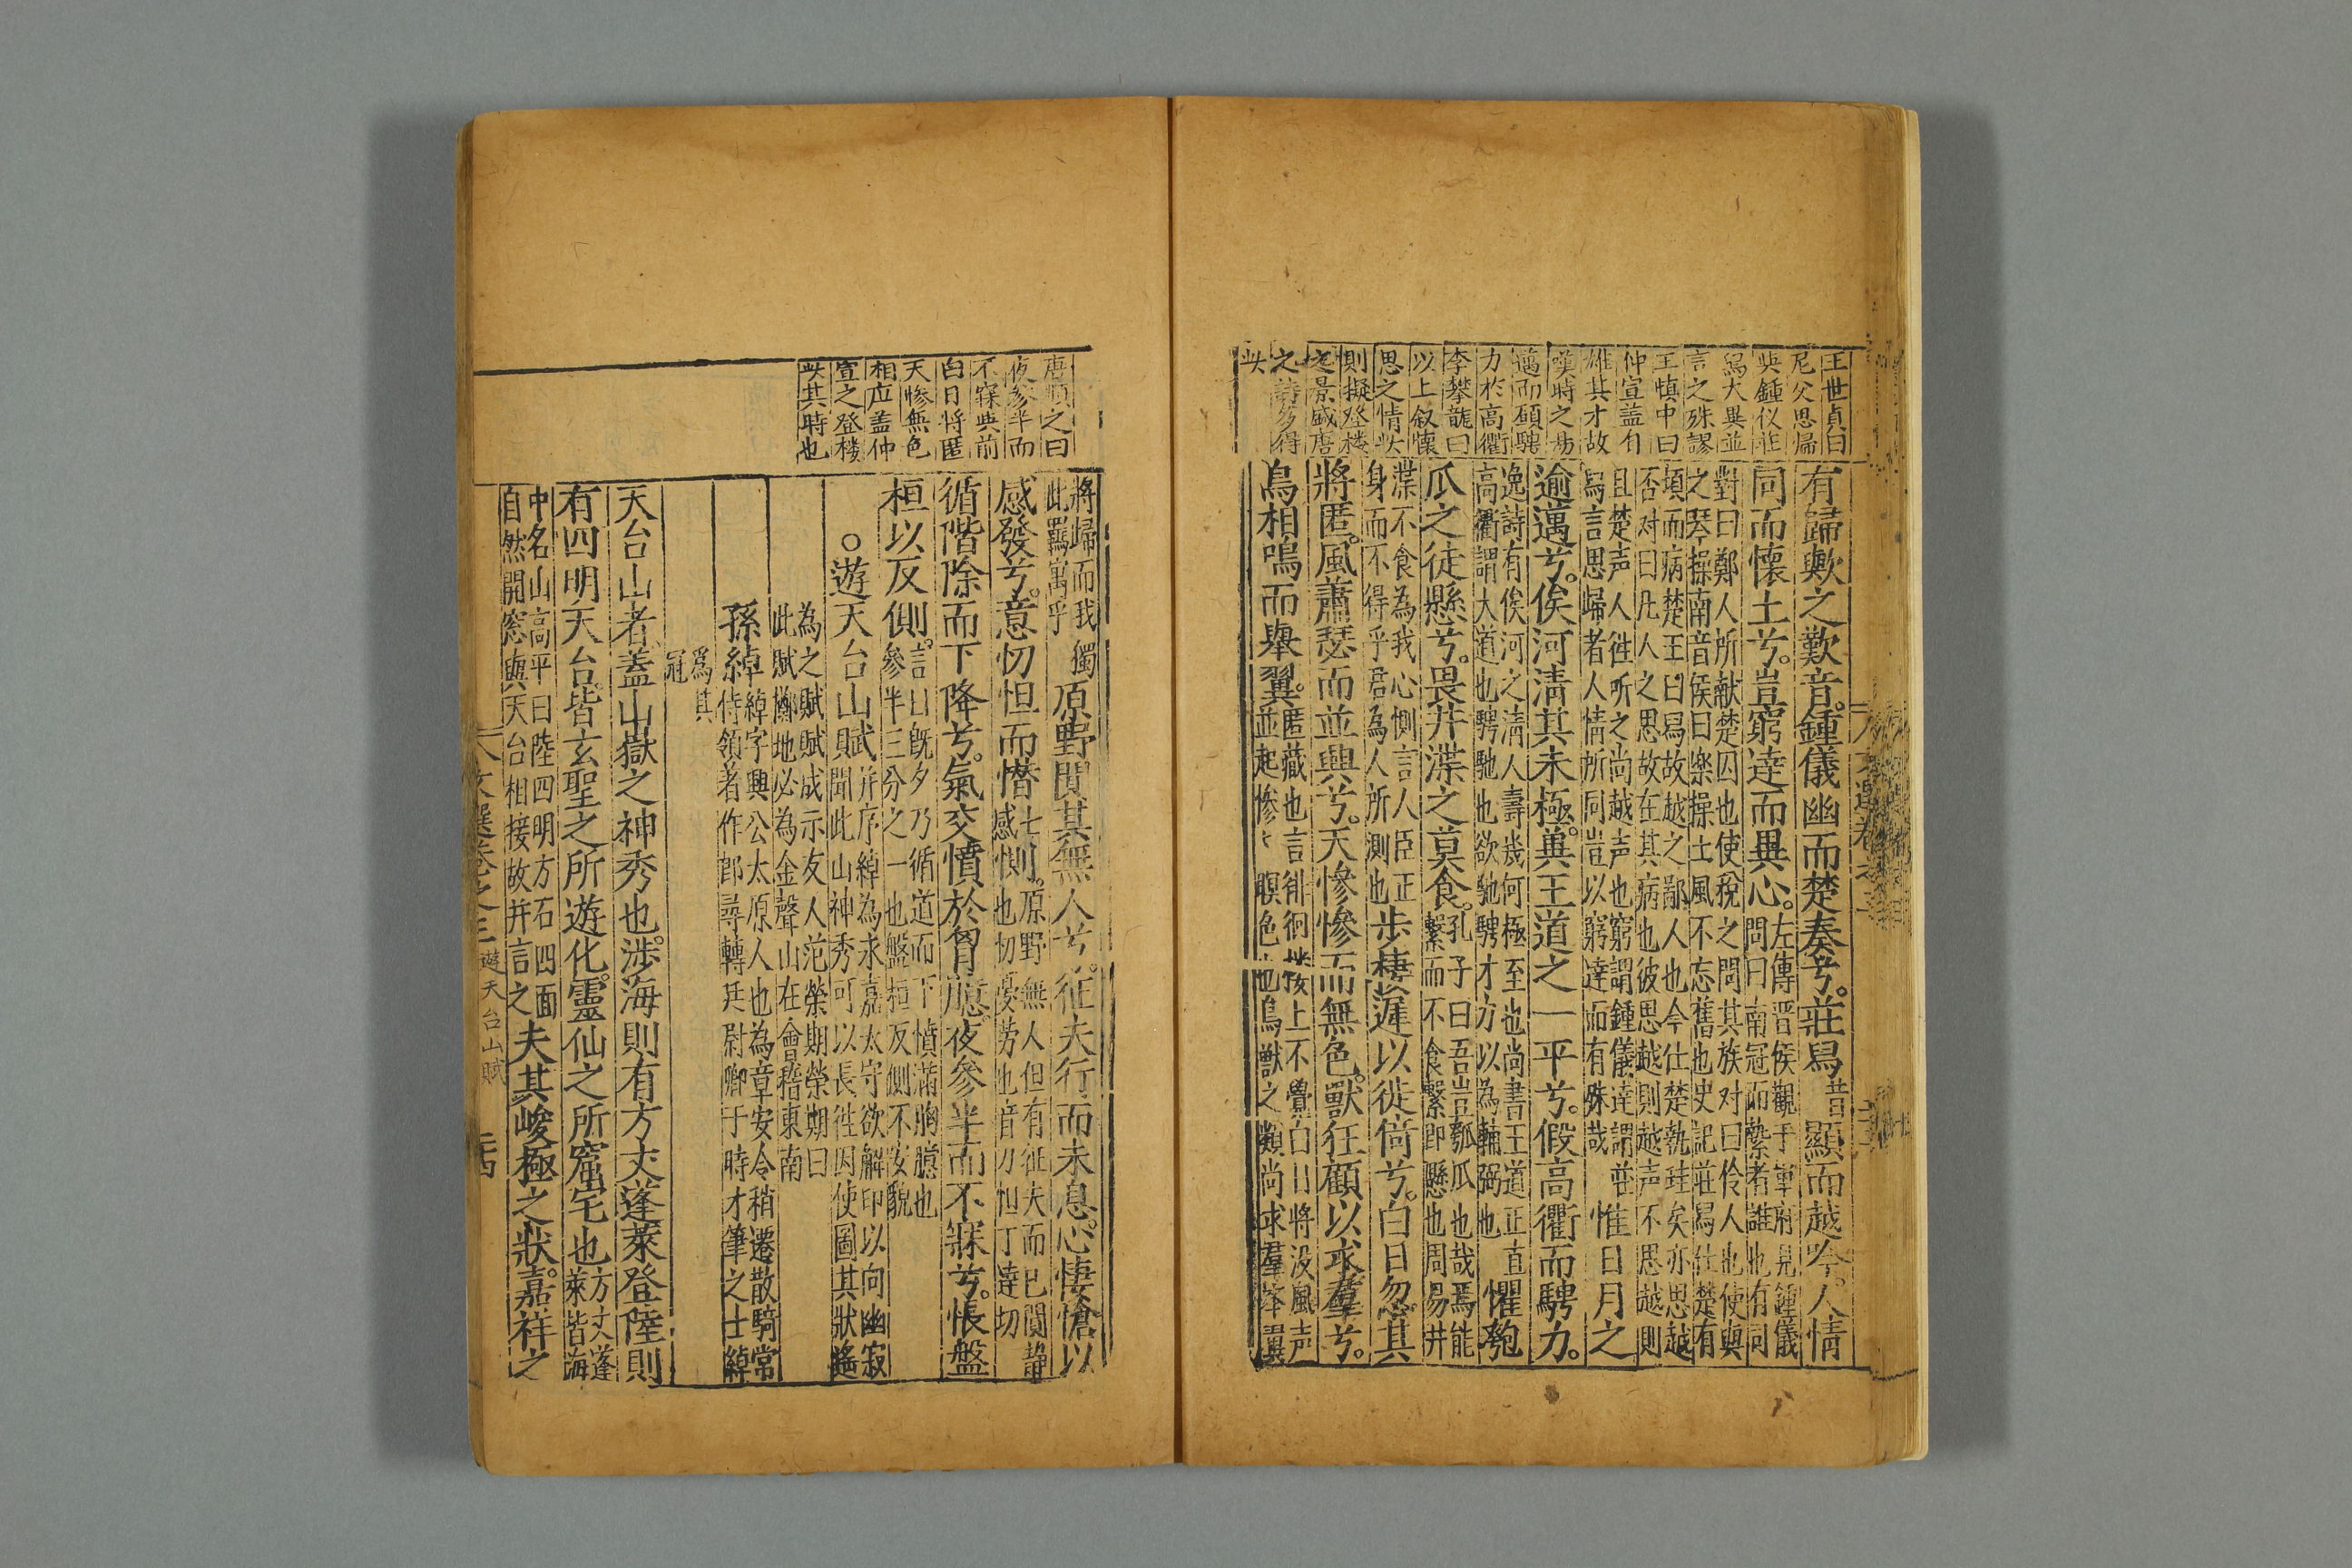 王世貞曰
尼父思㱕
與鍾儀莊
舃大異並
言之殊謬
王慎中曰
仲宣盖有
雄其才故
嘆時之易
邁而願騁
力於高衢
李攀龍曰
以上叙懐
思之情此
則擬登楼
之景盛唐
之詩多得
此
有歸歟之歎音。鍾儀幽而楚奏兮。莊舃昔顯而越吟。人情
同而懷土兮。豈窮達而異心。左傳晋侯觀于軍府見鍾儀
問曰南冠而縶者誰也有司
對曰鄭人所献楚囚也使稅之問其族对曰伶人也使與
之琴操南音侯曰楽操土風不忘舊也史記莊舃仕楚有
頃而病楚王曰舃故越之鄙人也今仕楚執珪矣亦思越
否对曰凡人之思故在其病也彼思越則越声不思越則
且楚声人徃听之尚越声也窮謂鍾儀達謂莊
舃言思歸者人情所同豈以窮達而有殊哉惟日月之
逾邁兮。俟河淸其未極。兾王道之一平兮。假高衢而騁力。
逸詩有俟河之淸人壽幾何極至也尚書王道正直
高衢謂大道也騁馳也欲馳騁才力以為輔弼也懼匏
瓜之徒懸兮。畏井渫之莫食。孔子曰吾豈瓠瓜也哉焉能
繫而不食繫即懸也周易井
渫不食為我心惻言人臣正
身而不得乎君為人所測也步棲遲以徙倚兮。白日忽其
將匿。風蕭瑟而並興兮。天慘慘而無色。獸狂顧以求羣兮。
鳥相鳴而舉翼。匿藏也言徘徊楼上不覺白日將没風声
並起慘〻暝色也鳥獸之類尚求羣举翼
唐順之曰
夜參半而
不寐與前
白日將匿
天慘無色
相应盖仲
宣之登楼
此其時也
將歸而我獨
此羈寓乎原野闃其無人兮。征夫行而未息。心悽愴以
感發兮。意忉怛而憯惻。七感原野無人但有征夫而已闃靜
也忉憂勞也音刀怛丁達切
循階除而下降兮。氣交憤於胷臆。夜參半而不寐兮。悵盤
桓以反側。言日既夕乃循道而下憤滿胸臆也
參半三分之一也盤桓反側不安貌
○遊天台山賦并序綽為永嘉太守欲解印以向幽寂
聞此山神秀可以長徃因使圖其狀遙
為之賦賦成示友人范榮期榮期曰
此賦擲地必為金聲山在會稽東南
孫綽綽字興公太原人也為章安令稍遷散騎常
侍領著作郎尋轉廷尉卿于時才筆之士綽
爲其
冠
天台山者。蓋山嶽之神秀也。涉海則有方丈蓬萊登陸則
有四明天台。皆玄聖之所遊化。靈仙之所窟宅也方丈蓬
萊皆海
中名山高平曰陸四明方石四面
自然開窓與天台相接故并言之夫其峻極之狀。嘉祥之
文選卷之三 遊天台山賦